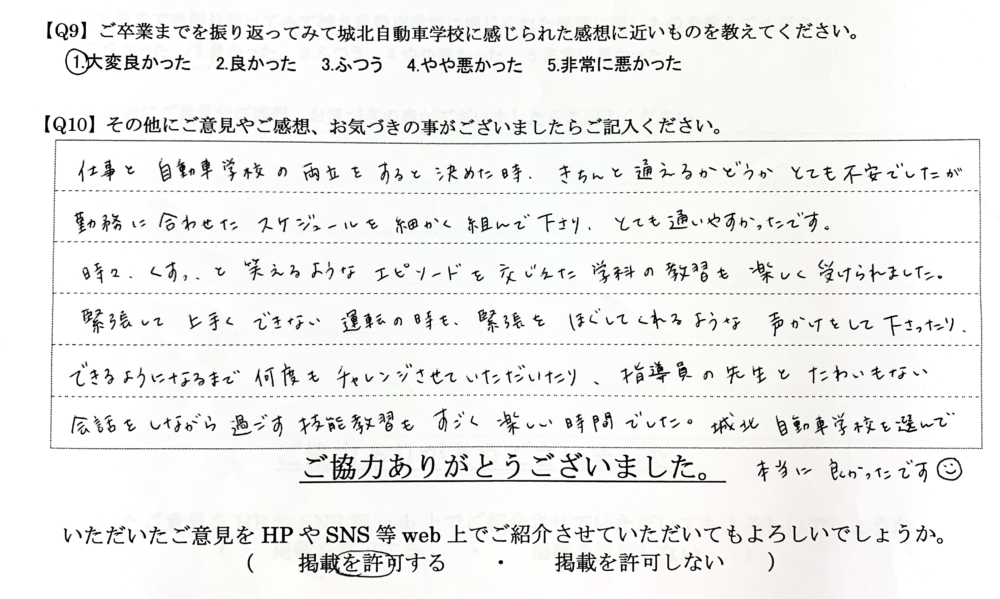 【Q9】ご卒業までを振り返ってみて城北自動車学校に感じられた感想に近いものを教えてください。
1.大変良かった 2.良かった 3.ふつう 4.やや悪かった 5.非常に悪かった
【Q10】その他にご意見やご感想、お気づきの事がございましたらご記入ください。
仕事と自動車学校の両立をすると決めた時、きちんと通えるかどうかとても不安でしたが
勤務に合わせたスケジュールを細かく組んで下さり、とても通いやすかったです。
時々、くすっ、と笑えるようなエピソードを交じえた学科の教習も楽しく受けられました。
緊張して上手くできない運転の時も、緊張をほぐしてくれるような声かけをして下さったり、
できるようになるまで何度もチャレンジさせていただいたり、指導員の先生とたわいもない
会話をしながら過ごす技能教習もすごく楽しい時間でした。城北自動車学校を選んで
本当に良かったです☺
ご協力ありがとうございました。
いただいたご意見をHPやSNS等web上でご紹介させていただいてもよろしいでしょうか。
( 掲載を許可する ・ 掲載を許可しない )